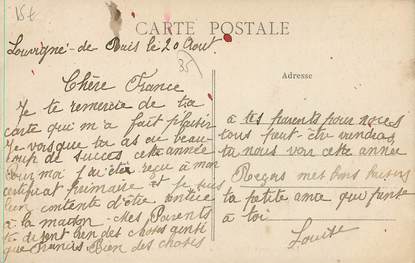 15€
CARTE POSTALE
Louvigné-de Bais le 20 Aout
35
Adresse
Chère France
Je te remercie de ta
carte qui m'a fait plaisir
Je vois que tu as eu beau
coup de succes, cette année
Pour moi j'ai été reçu à mon
certificat primaire et je suis
bien contente d'être entrée
à la maison - Mes Parents
te disent bien des choses ainsi
que Bien des choses
à tes parents pour nous
tous peut-être viendras
tu nous voir cette année
Reçois mes bons baisers
ta petite amie qui pense
à toi
Louise